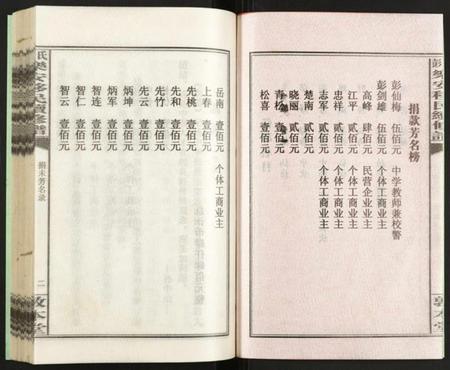 捐款芳名榜
彭仙梅 伍佰元 中学教师兼校警
彭剑雄 伍佰元 个体工商业主
高峰 肆佰元 民营企业业主
江平 贰佰元 个体工商业主
忠祥 贰佰元 个体工商业主
志军 贰佰元 个体工商业主
楚南 贰佰元
晓丽 贰佰元
青松 壹佰元
松喜 壹佰元
岳南 壹佰元 个体工商业主
上春 壹佰元
先桃 壹佰元
先和 壹佰元
先竹 壹佰元
先云 壹佰元
炳坤 壹佰元
炳军 壹佰元
智连 壹佰元
智仁 壹佰元
智云 壹佰元
捐末芳名录
二
敦本堂